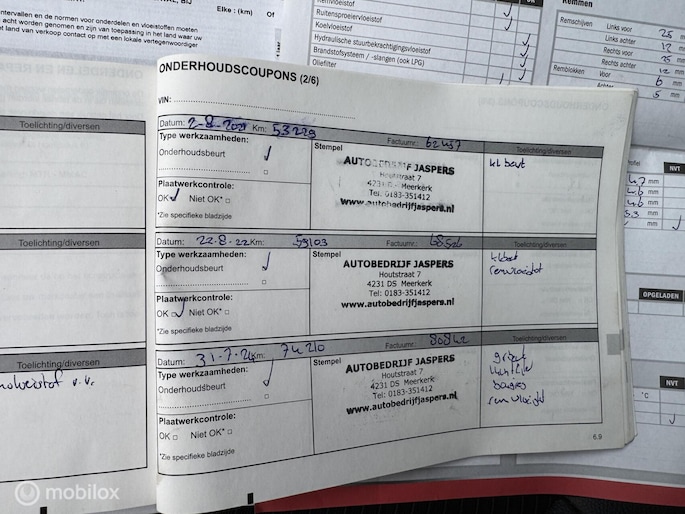 Elke : (km) Of
intervallen en de normen voor onderdelen en vloeistoffen moeten
acht worden genomen en zijn van toepassing in het land waar uw
het land van verkoop contact op met een lokale vertegenwoordiger
Ruitensproeiervloeistof
Koelvloeistof
Hydraulische stuurbekrachtigingsvloeistof
Brandstofsysteem / -slangen (ook LPG)
Oliefilter
OK
Remmen
Remschijven Links voor 25 mm
Links achter 12 mm
Rechts voor 25 mm
Rechts achter 12 mm
Remblokken Voor 6 mm
Achter 5 mm
Toelichting/diversen
Toelichting/diversen
Toelichting/diversen
ONDERHOUDSCOUPONS (2/6)
VIN:
Datum: 2-8-2021 Km: 53229 Factuurnr.: 62457
Type werkzaamheden:
Onderhoudsbeurt
Plaatwerkcontrole:
OK Niet OK*
*Zie specifieke bladzijde
Stempel
AUTOBEDRIJF JASPERS
Houtstraat 7
4231 DS Meerkerk
Tel. 0183-351412
www.autobedrijfjaspers.nl
Toelichting/diversen
kl beurt
Datum: 22-8-22 Km: 59103 Factuurnr.: 68526
Type werkzaamheden:
Onderhoudsbeurt
Plaatwerkcontrole:
OK Niet OK*
*Zie specifieke bladzijde
Stempel
AUTOBEDRIJF JASPERS
Houtstraat 7
4231 DS Meerkerk
Tel: 0183-351412
www.autobedrijfjaspers.nl
Toelichting/diversen
kl beurt
remvloeistof
Datum: 31-7-24 Km: 74210 Factuurnr.: 80842
Type werkzaamheden:
Onderhoudsbeurt
Plaatwerkcontrole:
OK Niet OK*
*Zie specifieke bladzijde
Stempel
AUTOBEDRIJF JASPERS
Houtstraat 7
4231 DS Meerkerk
Tel: 0183-351412
www.autobedrijfjaspers.nl
Toelichting/diversen
bougies
remvloeistof
6.9
profiel NVT
4.7 mm
4.6 mm
4.6 mm
5.3 mm
OPGELADEN NVT
NVT
°C
mobilox